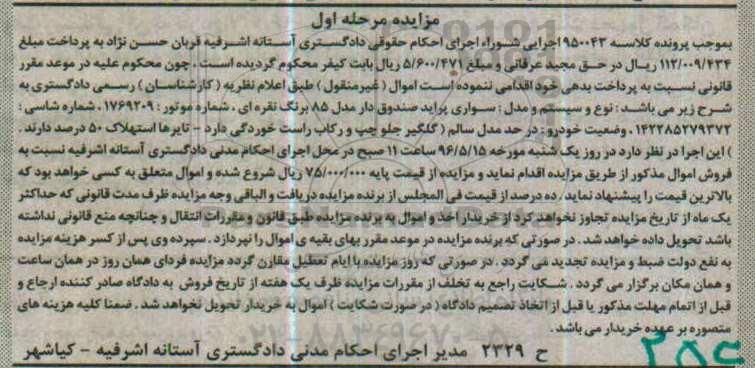 مزایده مرحله اول
بموجب پرونده کلاسه ۹۵۰۰۴۳ اجرایی شوراء اجرای احکام حقوقی دادگستری آستانه اشرفیه قربان حسن نژاد به پرداخت مبلغ
۱۱۲/۰۰۹/۴۳۴ ریال در حق مجید عرفانی و مبلغ ۵/۶۰۰/۴۷۱ ریال بابت کیفر محکوم گردیده است . چون محکوم علیه در موعد مقرر
قانونی نسبت به پرداخت بدهی خود اقدامی ننموده است اموال ( غیرمنقول ) طبق اعلام نظریه ( کارشناسان ) رسمی دادگستری به
شرح زیر می باشد : نوع و سیستم و مدل : سواری پراید صندوق دار مدل ۸۵ برنگ نقره ای . شماره موتور : ۱۷۶۹۲۰۹ . شماره شاسی :
۱۴۲۲۸۵۲۷۹۳۷۲ . وضعیت خودرو : در حد مدل سالم ( گلگیر جلو چپ و رکاب راست خوردگی دارد – تایرها استهلاک ۵۰ درصد دارند .
) این اجرا در نظر دارد در روز یک شنبه مورخه ۹۶/۵/۱۵ ساعت ۱۱ صبح در محل اجرای احکام مدنی دادگستری آستانه اشرفیه نسبت به
فروش اموال مذکور از طریق مزایده اقدام نماید و مزایده از قیمت پایه ۷۵/۰۰۰/۰۰۰ ریال شروع شده و اموال متعلق به کسی خواهد بود که
بالاترین قیمت را پیشنهاد نماید . ده درصد از قیمت فی المجلس از برنده مزایده دریافت و الباقی وجه مزایده ظرف مدت قانونی که حداکثر
یک ماه از تاریخ مزایده تجاوز نخواهد کرد از خریدار اخذ و اموال به برنده مزایده طبق قانون و مقررات انتقال و چنانچه منع قانونی نداشته
باشد تحویل داده خواهد شد . در صورتی که برنده مزایده در موعد مقرر بهای بقیه ی اموال را نپردازد . سپرده وی پس از کسر هزینه مزایده
به نفع دولت ضبط و مزایده تجدید می گردد . در صورتی که روز مزایده با ایام تعطیل مقارن گردد مزایده فردای همان روز در همان ساعت
و همان مکان برگزار می گردد . شکایت راجع به تخلف از مقررات مزایده ظرف یک هفته از تاریخ فروش به دادگاه صادر کننده ارجاع و
قبل از اتمام مهلت مذکور یا قبل از اتخاذ تصمیم دادگاه ( در صورت شکایت ) اموال به خریدار تحویل نخواهد شد . ضمنا کلیه هزینه های
متصوره بر عهده خریدار می باشد .
ح ۲۳۲۹ مدیر اجرای احکام مدنی دادگستری آستانه اشرفیه – کیاشهر
۰۲۱-۸۸۳۴۹۶۷۰-۵